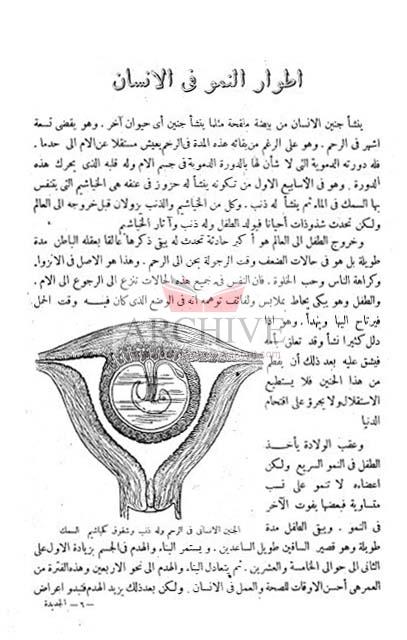 اطوار النمو فى الانسان
ينشأ جنين الانسان من بيضة ملقحة مثلما ينشأ جنين أى حيوان آخر . وهو يقضى تسعة
اشهر فى الرحم . وهو على الرغم من بقائه هذه المدة فى الرحم يعيش مستقلا عن الام الى حد ما .
فله دورته الدموية التى لا شأن لها بالدورة الدموية فى جسم الام وله قلبه الذى يحرك هذه
الدورة . وهو فى الاسابيع الاول من تكونه ينشأ له حزوز فى عنقه هى الخياشيم التى يتنفس
بها السمك فى الماء ثم ينشأ له ذنب . وكل من الخياشيم والذنب يزولان قبل خروجه الى العالم
ولكن تحدث شذوذات أحيانا فيولد الطفل وله ذنب وآثار الخياشيم
وخروج الطفل الى العالم هو أكبر حادثة تحدث له يبقى ذكرها عالقا بعقله الباطن مدة
طويلة بل هو فى حالات الضعف وقت الرجولة يحن الى الرحم . وهذا هو الاصل فى الانزواء
وكراهة الناس وحب الخلوة . فان النفس فى جميع هذه الحالات تنزع الى الرجوع الى الام .
والطفل وهو يبكى يحاط بملابس ولفائف توهمه أنه فى الوضع الذى كان فيه وقت الحمل
فيرتاح اليها ويهدأ . وهو اذا
دلل كثيرا نشأ وقد تعلق بأمه
فيشق عليه بعد ذلك أن يفطم
من هذا الحنين فلا يستطيع
الاستقلال ولا يجرؤ على اقتحام
الدنيا
وعقب الولادة يأخذ
الطفل فى النمو السريع ولكن
اعضاءه لا تنمو على نسب
متساوية فبعضها يفوت الآخر
فى النمو . ويبقى الطفل مدة
ARCHIVE
الجنين الانسانى فى الرحم وله ذنب وشقوق كخياشيم السمك
طويلة وهو قصير الساقين طويل الساعدين . ويستمر البناء والهدم فى الجسم بزيادة الاول على
الثانى الى حوالى الخامسة والعشرين . ثم يتعادل البناء والهدم الى نحو الاربعين وهذه الفترة من
العمر هى أحسن الاوقات للصحة والعمل فى الانسان . ولكن بعد ذلك يزيد الهدم فتبدو اعراض
—٦— الجديدة